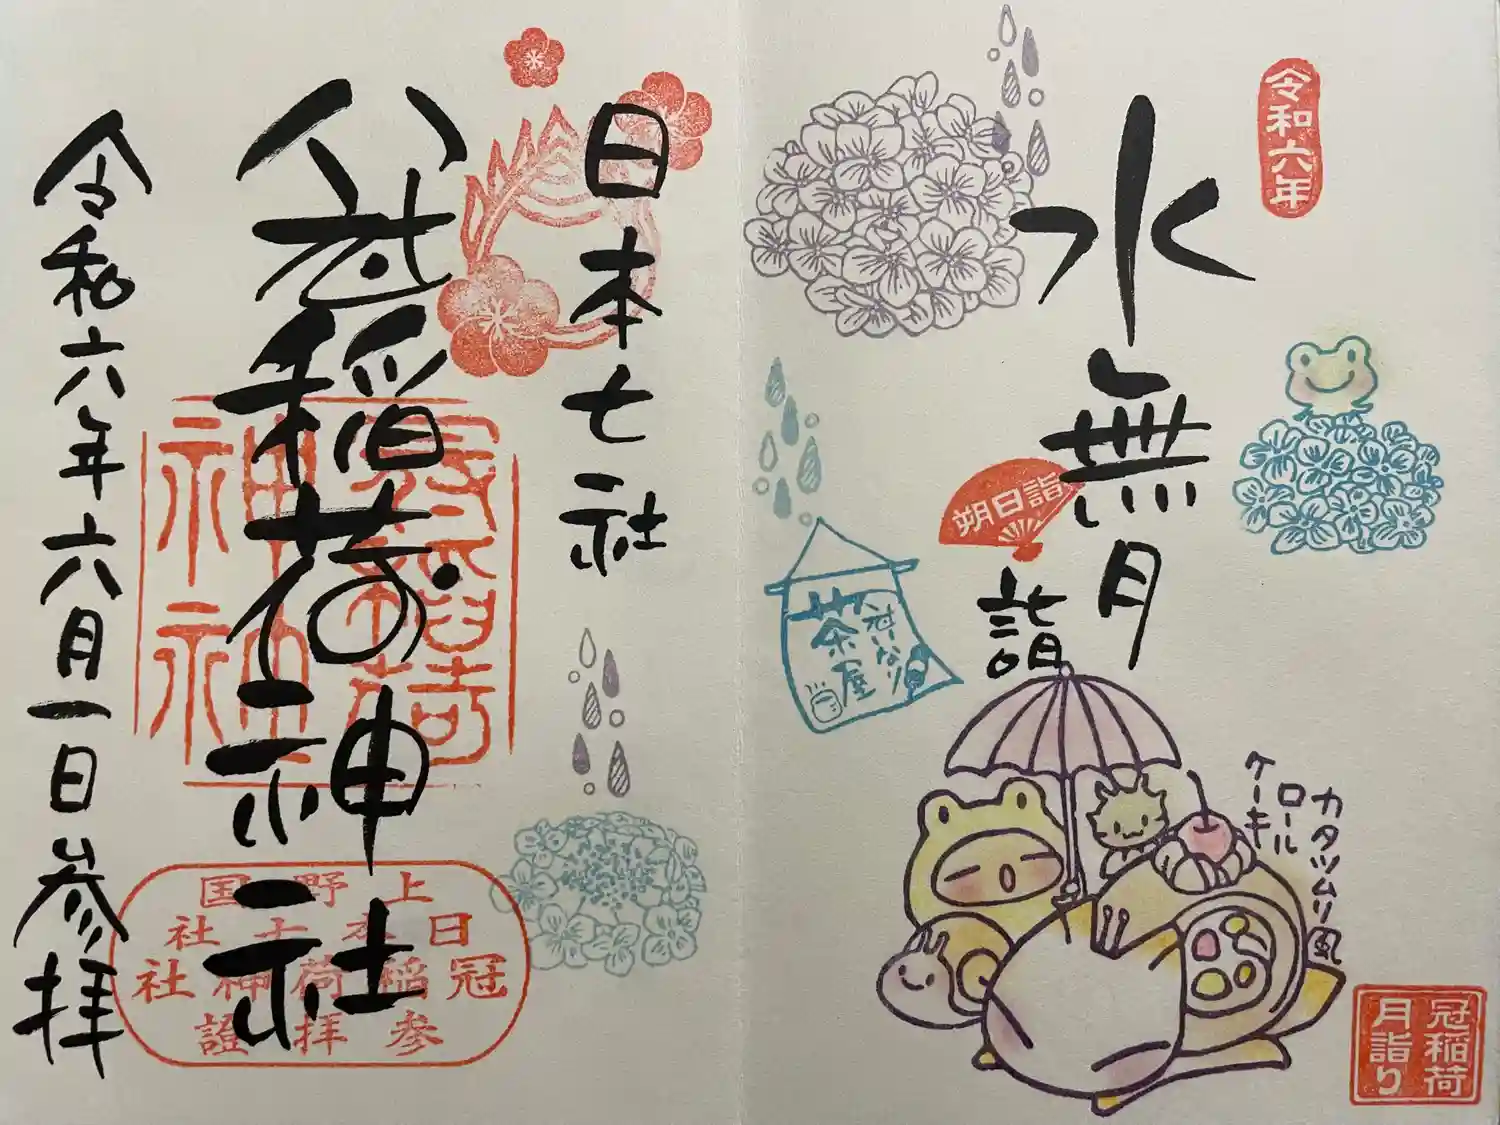 令和六年
水無月
詣
朔日詣
冠いなり
茶屋
カタツムリ風
ロール
ケーキ
冠稲荷
月詣り
日本七社
冠稲荷神社
令和六年六月一日参拝
冠稲荷
神社
神社
上野国
日本七社
冠稲荷神社
参拝證